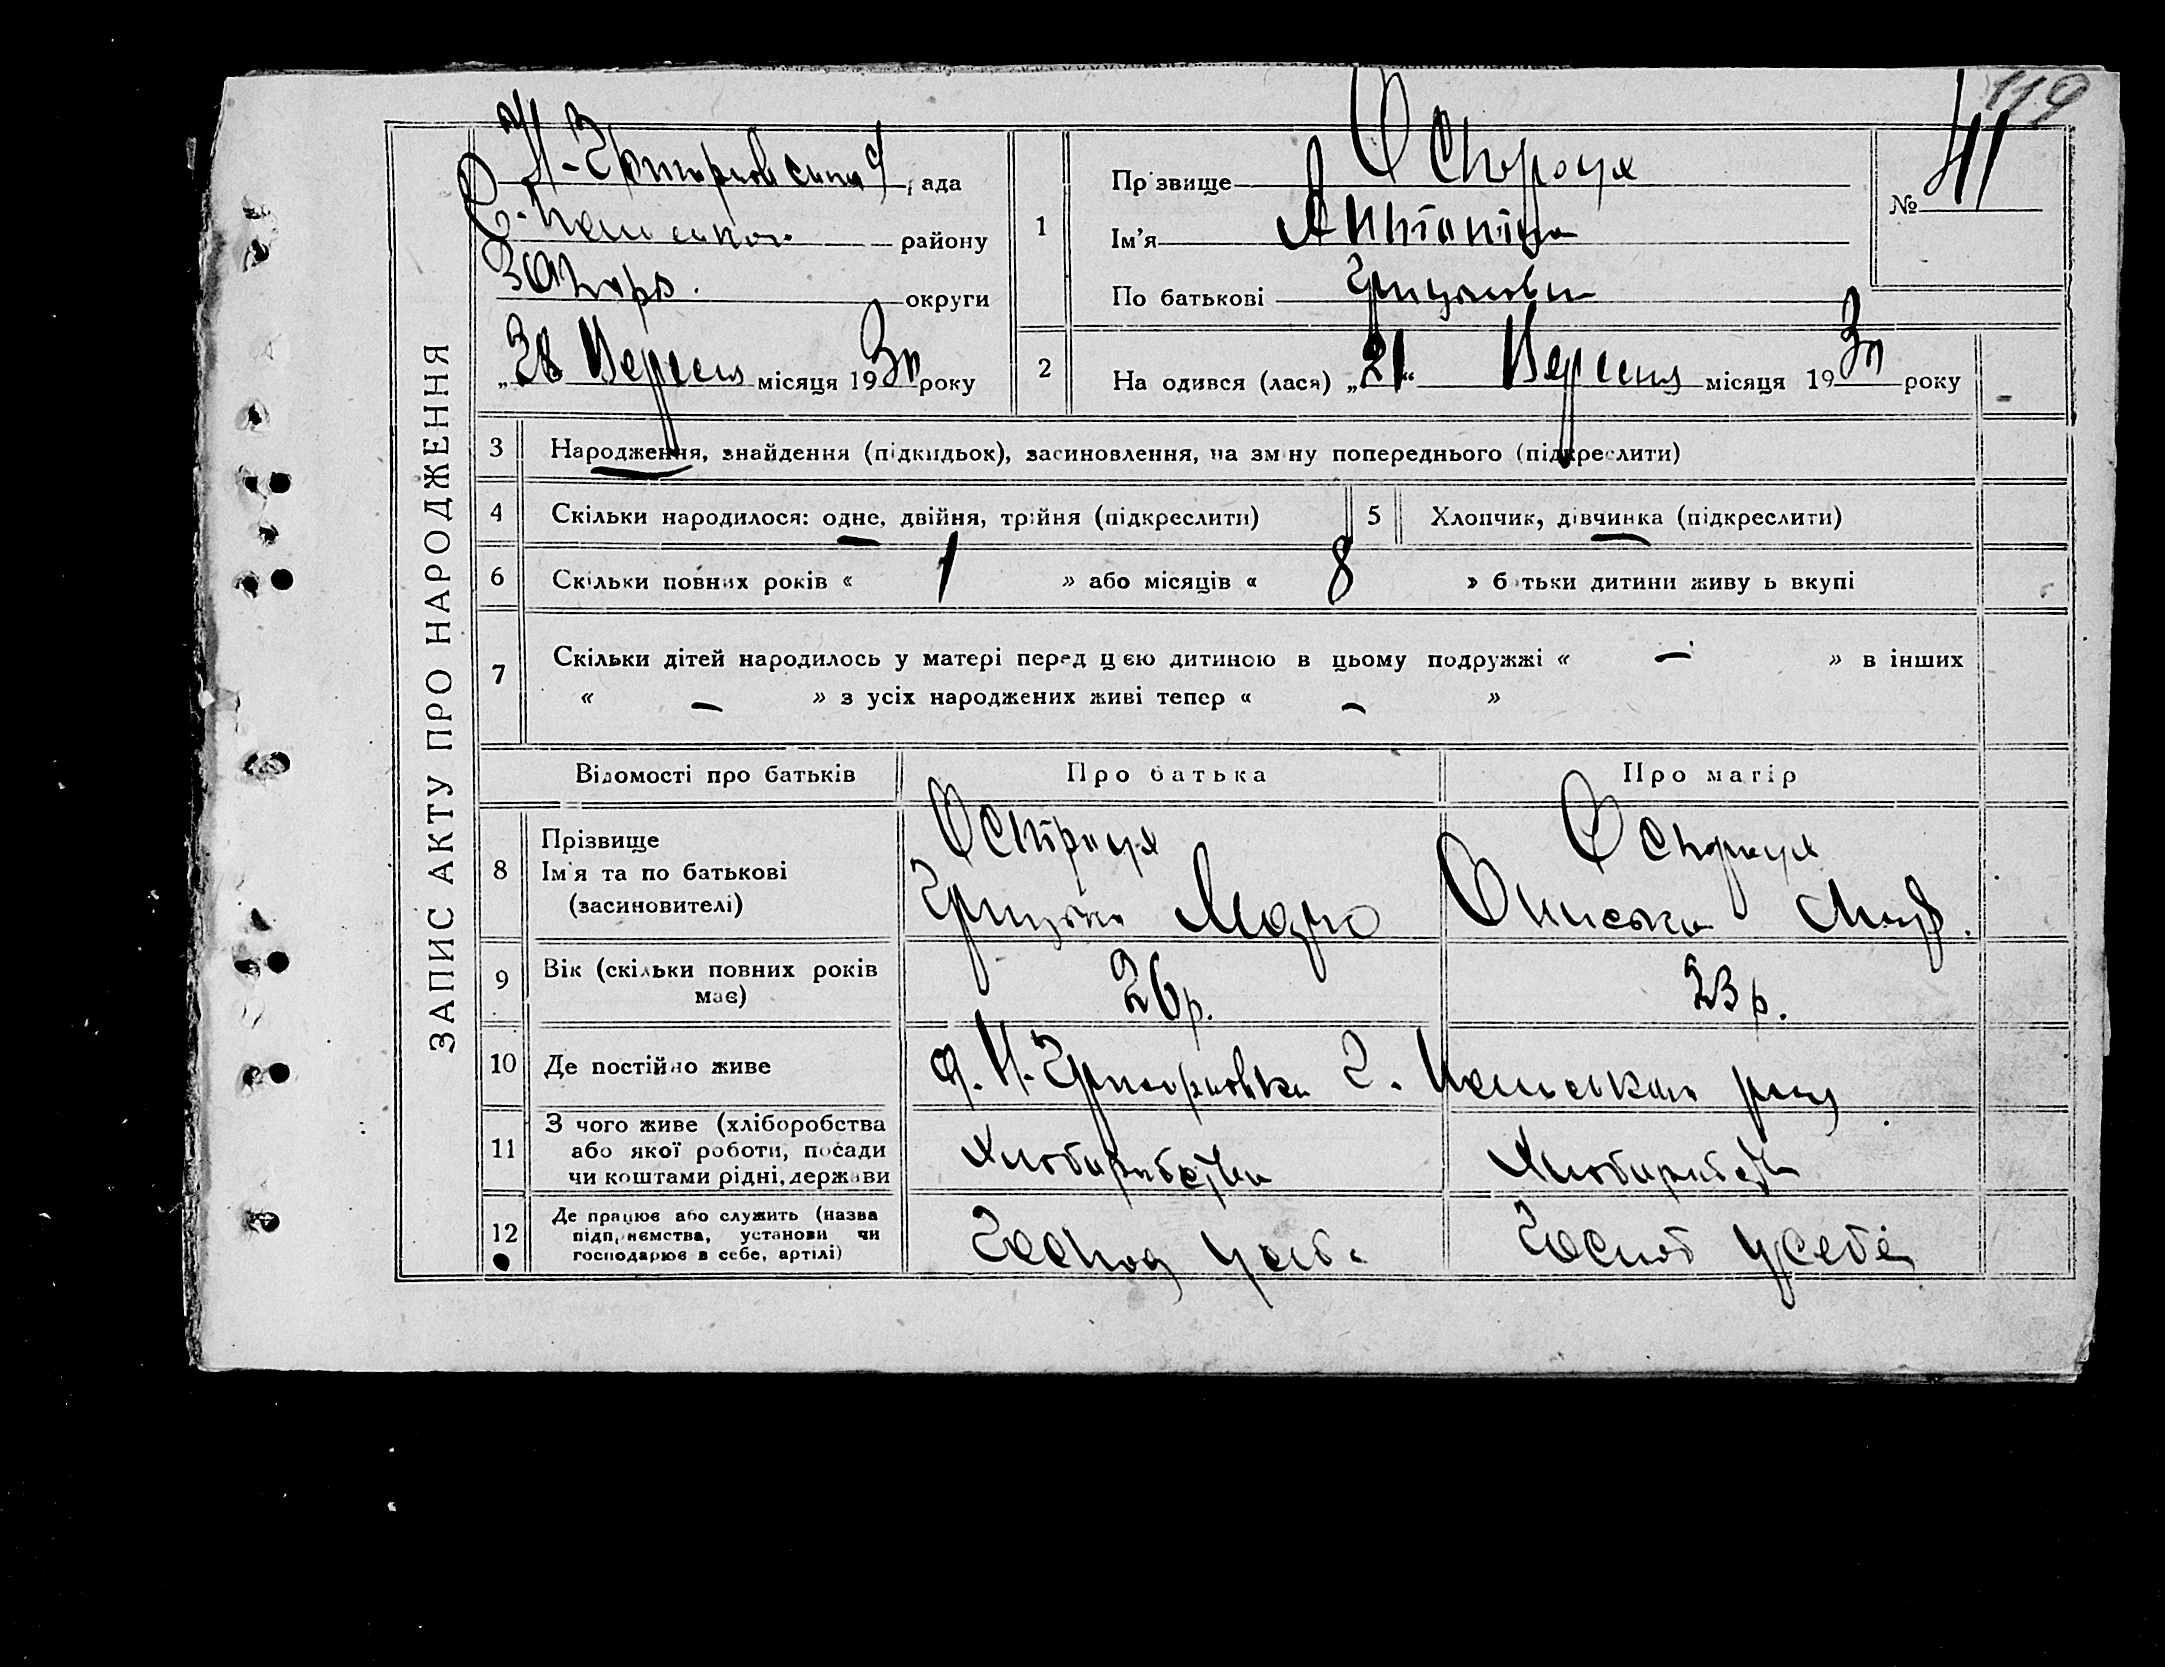 119
ЗАПИС АКТУ ПРО НАРОДЖЕННЯ
ада
району
Запорз. округи
„28 Вересня місяця 1930 року
1 Пр звище
Ім'я Антоніна
По батькові Грицькова
№ 411
2 На одився (лася) „21“ Вересня місяця 1930 року
3 Народження, знайдення (підкидьок), засиновлення, на зм ну попереднього (підкреслити)
4 Скільки народилося: одне, двійня, трійня (підкреслити) 5 Хлопчик, дівчинка (підкреслити)
6 Скільки повних років « 1 » або місяців « 8 » б тьки дитини живу ь вкупі
7 Скільки дітей народилось у матері перед цією дитиною в цьому подружжі « — » в інших
« — » з усіх народжених живі тепер « — »
Відомості про батьків Про батька Про матір
8 Прізвище
Ім'я та по батькові
(засиновителі)
Остроця
Грицько
Остроця
Ониська
9 Вік (скільки повних років має) 26 р. 23 р.
10 Де постійно живе
11 З чого живе (хліборобства
або якої роботи, посади
чи коштами рідні, держави
12 Де працює або служить (назва
підприємства, установи чи
господарює в себе, артілі)
Господ у себе Господ у себе